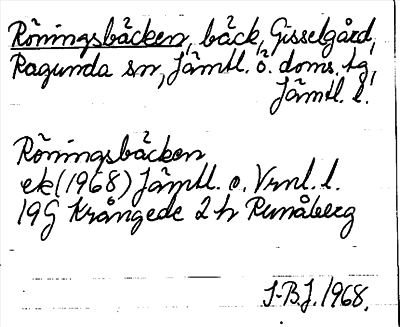 Röningsbäcken, bäck, Gisselgård,
Ragunda sn, Jämtl. ö. doms. tg,
Jämtl. l.
Röningsbäcken
ek (1968) Jämtl. o. Vrnl. l.
19G Krångede 2h Runåberg
J-B.J. 1968.